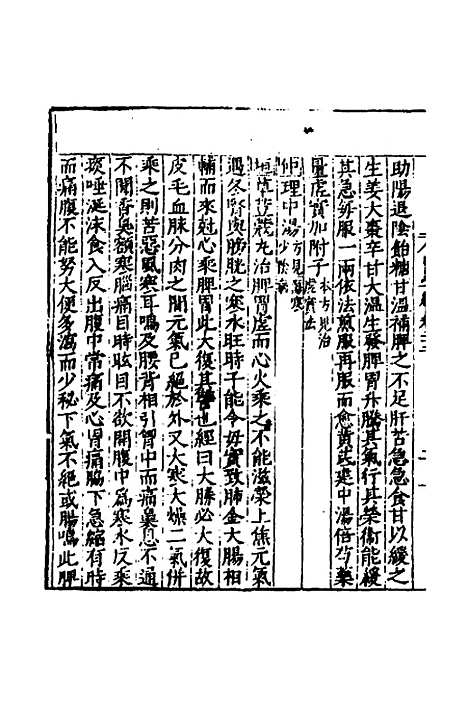 助陽退陰飴糖甘溫補脾之不足肝苦急急食甘以緩之
生姜大棗辛甘大溫生發脾胃升騰其氣行其榮衛能緩
其急每服一兩依法煎服再服而愈黄芪建中湯倍芍藥
量虛實加附子
本方見治虛實法
中理中湯
方見陰寒少陰病
草豆蔻丸治脾胃虛而心火乘之不能滋榮上焦元氣
遇冬腎與膀胱之寒水旺時子能令母實致肺金大腸相
輔而來尅心乘脾胃此大復其讐也經曰大勝必大復故
皮毛血脉分肉之間元氣已絕於外又大寒大燥二氣併
乘之則苦惡風寒耳鳴及腰背相引胷中而痛鼻息不通
不聞香臭額寒腦痛目時眩目不欲開腹中爲寒水反乘
痰唾涎沫食入反出腹中常痛及心胃痛脇下急縮有時
而痛腹不能努大便多瀉而少秘下氣不絕或腸鳴此脾